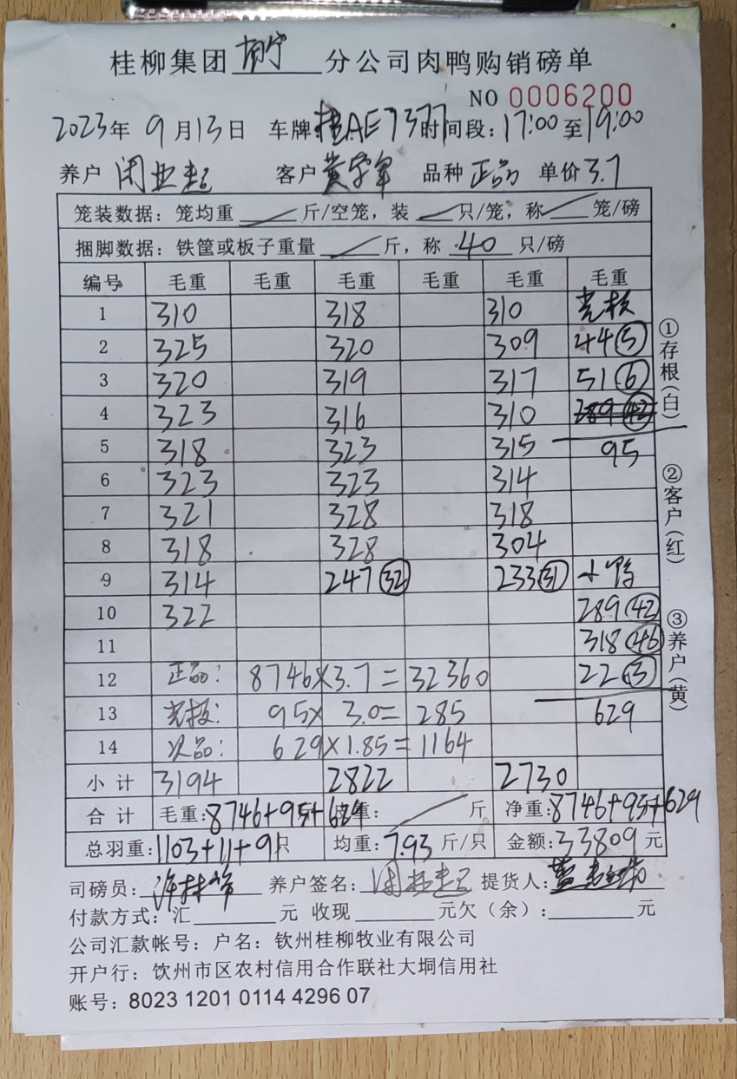 桂柳集团南宁分公司肉鸭购销磅单
NO 0006200
2023年 9月13日 车牌桂AE7377时间段:17:00至19:00
养户 闭业起 客户 黄字军 品种 正品 单价 3.7
笼装数据:笼均重 斤/空笼,装 只/笼,称 笼/磅
捆脚数据:铁筐或板子重量 斤,称 40 只/磅
编号 毛重 毛重 毛重 毛重 毛重 毛重
1 310 318 310
2 325 320 309 44 ⑤
3 320 319 317 51 ⑥
4 323 316 310 289 42
5 318 323 315 95
6 323 323 314
7 321 328 318
8 318 328 304
9 314 247 32 233 31 小鸭
10 322 289 42
11 318 46
12 正品: 8746×3.7=32360 22 ③
13 95×3.0=285 629
14 次品: 629×1.85=1164
小计 3194 2822 2730
合计 毛重:8746+95+629 重: 斤 净重:8746+95+629
总羽重:1103+11+91只 均重:7.93斤/只 金额:33809元
司磅员: 养户签名: 提货人:
付款方式:汇 元 收现 元欠(余): 元
公司汇款帐号:户名:钦州桂柳牧业有限公司
开户行:钦州市区农村信用合作联社大垌信用社
账号:8023 1201 0114 4296 07
①存根(白)
②客户(红)
③养户(黄)